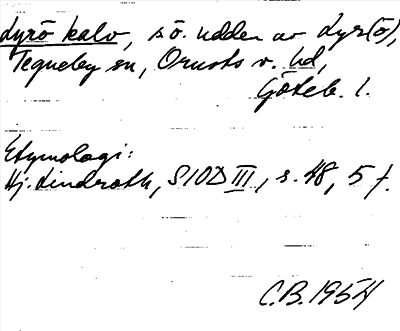 Dyrö kalv, sö. udden av Dyr(ö),
Tegneby sn, Orusts v. hd,
Göteb. l.
Etymologi:
Hj. Lindroth, SIOD III, s. 48, 5 f.
C.B. 1954